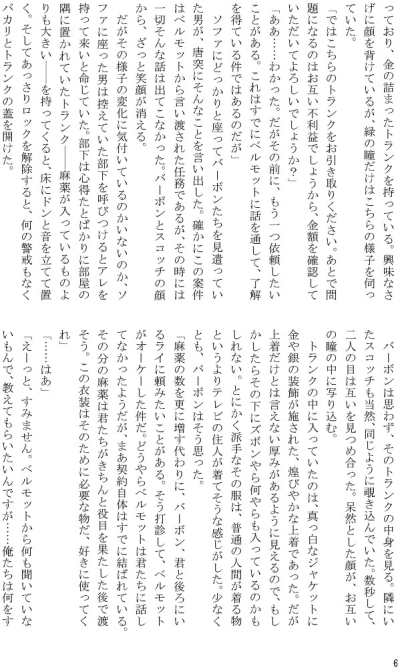 っており、金の詰まったトランクを持っている。興味なさ
げに顔を背けているが、緑の瞳だけはこちらの様子を伺っ
ていた。
「ではこちらのトランクをお引き取りください。あとで問
題になるのはお互い不利益でしょうから、金額を確認して
いただいてよろしいでしょうか?」
「ああ……わかった。だがその前に、もう一つ依頼したい
ことがある。これはすでにベルモットに話を通して、了解
を得ている件ではあるのだが」
ソファにどっかりと座ってバーボンたちを見遣ってい
た男が、唐突にそんなことを言い出した。確かにこの案件
はベルモットから言い渡された任務であるが、その時には
一切そんな話は出てこなかった。バーボンとスコッチの顔
から、ざっと笑顔が消える。
だがその様子の変化に気付いているのかいないのか、ソ
ファに座った男は控えていた部下を呼びつけるとアレを
持って来いと命じていた。部下は心得たとばかりに部屋の
隅に置かれていたトランク――麻薬が入っているものよ
りも大きい――を持ってくると、床にドンと音を立てて置
く。そしてあっさりロックを解除すると、何の警戒もなく
パカリとトランクの蓋を開けた。
バーボンは思わず、そのトランクの中身を見る。隣にい
たスコッチも当然、同じように覗き込んでいた。数秒して、
二人の目は互いを見つめ合った。呆然とした顔が、お互い
の瞳の中に写り込む。
トランクの中に入っていたのは、真っ白なジャケットに
金や銀の装飾が施された、煌びやかな上着であった。だが
上着だけとは言えない厚みがあるように見えるので、もし
かしたらその下にズボンやら何やらも入っているのかも
しれない。とにかく派手なその服は、普通の人間が着る物
というよりテレビの住人が着てそうな感じがした。少なく
とも、バーボンはそう思った。
「麻薬の数を更に増す代わりに、バーボン、君と後ろにい
るライに頼みたいことがある。そう打診して、ベルモット
がオーケーした件だ。どうやらベルモットは君たちに話し
てなかったようだが、まあ契約自体はすでに結ばれている。
その分の麻薬は君たちがきちんと役目を果たした後で渡
そう。この衣装はそのために必要な物だ、好きに使ってく
れ」
「……はあ」
「えーっと、すみません。ベルモットから何も聞いていな
いもんで、教えてもらいたいんですが……俺たちは何をす
6